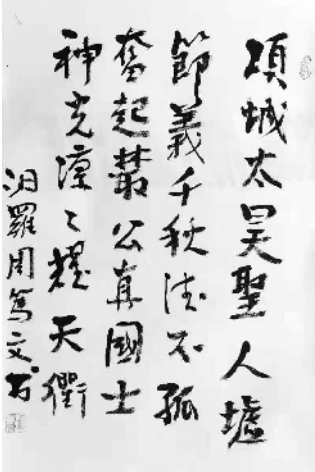 項城太昊聖人墟
節義千秋德不孤
奮起叢公真國士
神光凜々耀天衢
汨羅周篤文书